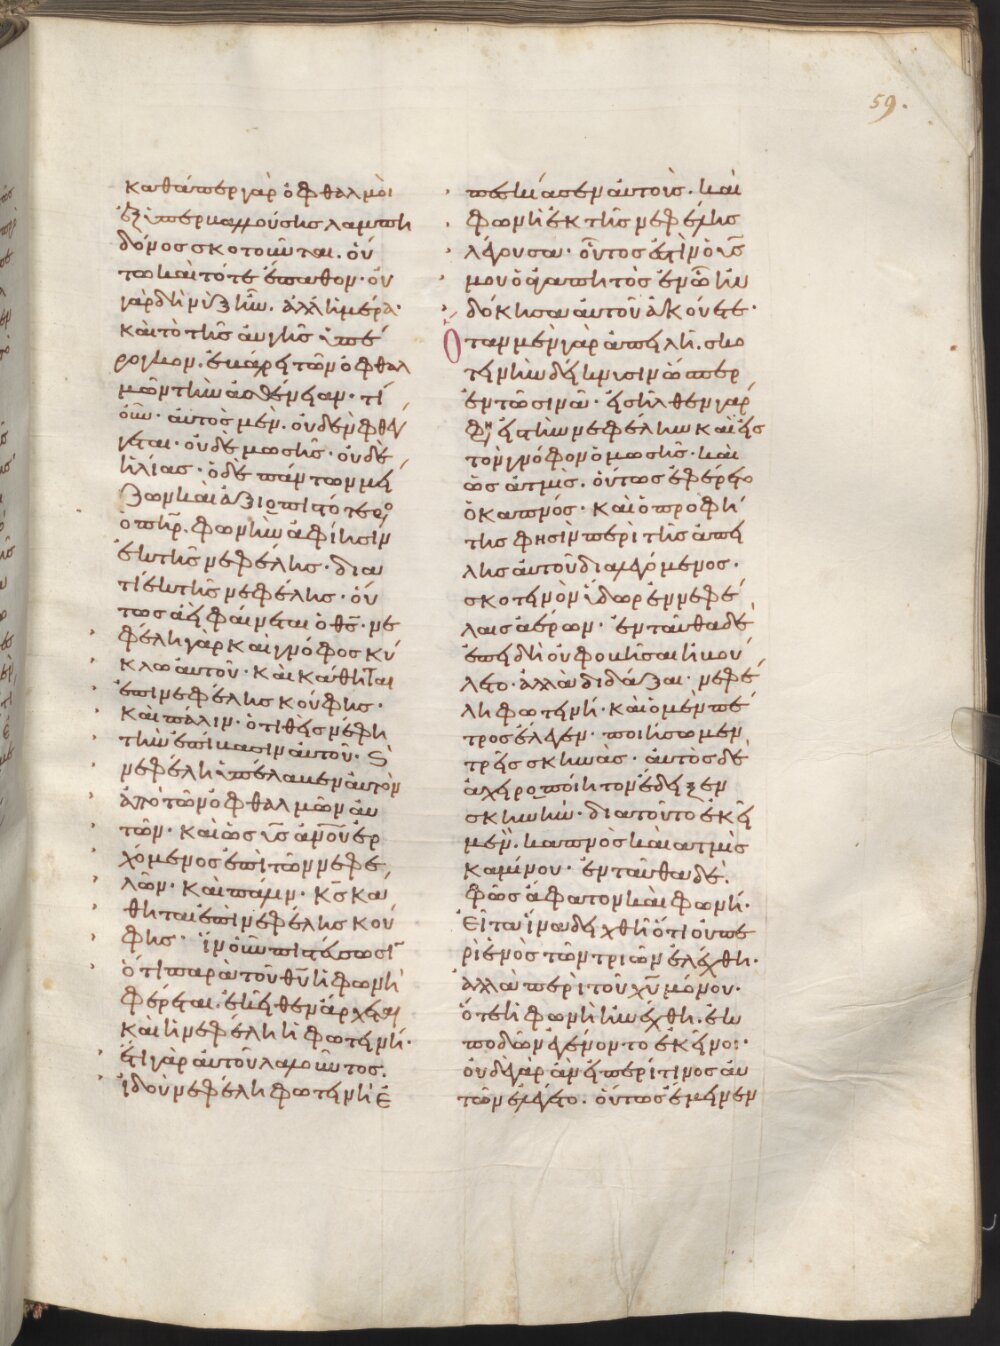 59.
καθάπερ γὰρ ὀφθαλμοὶ
ἐξ ὑπερβαλλούσης λαμπη
δόνος σκοτοῦνται. οὕ
τω καὶ τότε ἔπαθον· οὐ
γὰρ δὴ νὺξ ἦν. ἀλλ' ἡμέρα·
καὶ τὸ τῆς αὐγῆς ὑπέ
ρογκον. ἐβάρει τῶν ὀφθαλ
μῶν τὴν ἀσθένειαν· τί
οὖν· αὐτὸς μὲν. οὐδὲν φθέγ
γεται· οὐδὲ μωσῆς· οὐδὲ
ἡλίας· ὁ δὲ πάντων μεί
ζων καὶ ἀξιοπιστότερος
ὁ πηρ. φωνὴν ἀφίησιν
ἐκ τῆς νεφέλης· διὰ
τί ἐκ τῆς νεφέλης· οὕ
τως ἀεὶ φαίνεται ὁ θς· νε
φέλη γὰρ καὶ γνόφος κύ
κλω αὐτοῦ· καὶ κάθηται
ἐπὶ νεφέλης κούφης·
καὶ πάλιν· ὁ τιθεὶς νέφη
τὴν ἐπίβασιν αὐτοῦ· καὶ
νεφέλη ὑπέλαβεν αὐτὸν
ἀπὸ τῶν ὀφθαλμῶν αὐ
τῶν· καὶ ὡς υς ανου ἐρ
χόμενος ἐπὶ τῶν νεφε
λῶν· καὶ πάλιν· κς κά
θηται ἐπὶ νεφέλης κού
φης· ἵν' οὖν πιστεύσωσιν
ὅτι παρὰ τοῦ θυ ἡ φωνὴ
φέρεται. ἐκεῖθεν ἄρχεται
καὶ ἡ νεφέλη ἡ φωτεινή·
ἔτι γὰρ αὐτοῦ λαλοῦντος.
ἰδοὺ νεφέλη φωτεινὴ ἐ
πεσκίασεν αὐτοῖς. καὶ
φωνὴ ἐκ τῆς νεφέλης
λέγουσα· οὗτος ἐστὶν ὁ υς
μου ὁ ἀγαπητὸς ἐν ὧ ηὐ
δόκησα αὐτοῦ ἀκούετε·
Ὅταν μὲν γὰρ ἀπειλῆ. σκο
τεινὴν δείκνυσιν ὥσπερ
ἐν τῶ σινᾶ· εἰσῆλθεν γάρ
φησιν εἰς τὴν νεφέλην καὶ εἰς
τὸν γνόφον ὁ μωσῆς· καὶ
ὡς ἀτμὶς. οὕτως ἐφέρετο
ὁ καπνός· καὶ ὁ προφή
της φησὶν περὶ τῆς ἀπει
λῆς αὐτοῦ διαλεγόμενος·
σκοτεινὸν ὕδωρ ἐν νεφέ
λαις ἀέρων· ἐνταῦθα δὲ
ἐπειδὴ οὐ φοβῆσαι ἠβού
λετο· ἀλλὰ διδάξαι· νεφέ
λη φωτεινή· καὶ ὁ μὲν πέ
τρος ἔλεγεν· ποιήσωμεν
τρεῖς σκηνάς· αὐτὸς δὲ
ἀχειροποίητον ἔδειξεν
σκηνήν· διὰ τοῦτο ἐκεῖ
μὲν. καπνὸς καὶ ἀτμὶς
καμίνου· ἐνταῦθα δὲ.
φῶς ἄφατον καὶ φωνή·
Εἶτα ἵνα δειχθῆ ὅτι οὐ πε
ρὶ ἑνὸς τῶν τριῶν ἐλέχθη·
ἀλλὰ περὶ τοῦ χυ μόνου·
ὅτε ἡ φωνὴ ἠνέχθη. ἐκ
ποδὼν ἐγένοντο ἐκεῖνοι·
οὐ δὲ γὰρ ἂν εἰ περί τινος αὐ
τῶν ἐλέγετο. οὗτος ἔμεινεν